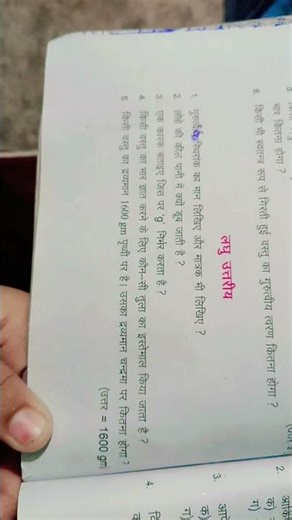 भार कितना होगा ?
6. किसी भी स्वतन्त्र रूप से गिरती हुई वस्तु का गुरुत्वीय त्वरण कितना होगा ?
लघु उत्तरीय
1. गुरुत्वीय स्थिरांक का मान लिखिए और मात्रक भी लिखिए ?
2. लोहे की कील पानी में क्यों डूब जाती है ?
3. एक कारक बताइए जिस पर 'g' निर्भर करता है ?
4. किसी वस्तु का भार ज्ञात करने के लिए कौन-सी तुला का इस्तेमाल किया जाता है ?
5. किसी वस्तु का द्रव्यमान 1600 gm पृथ्वी पर है। उसका द्रव्यमान चन्द्रमा पर कितना होगा ?
(उत्तर = 1600 gm
2.
क)
ग)
3.
क)
ग)
4.